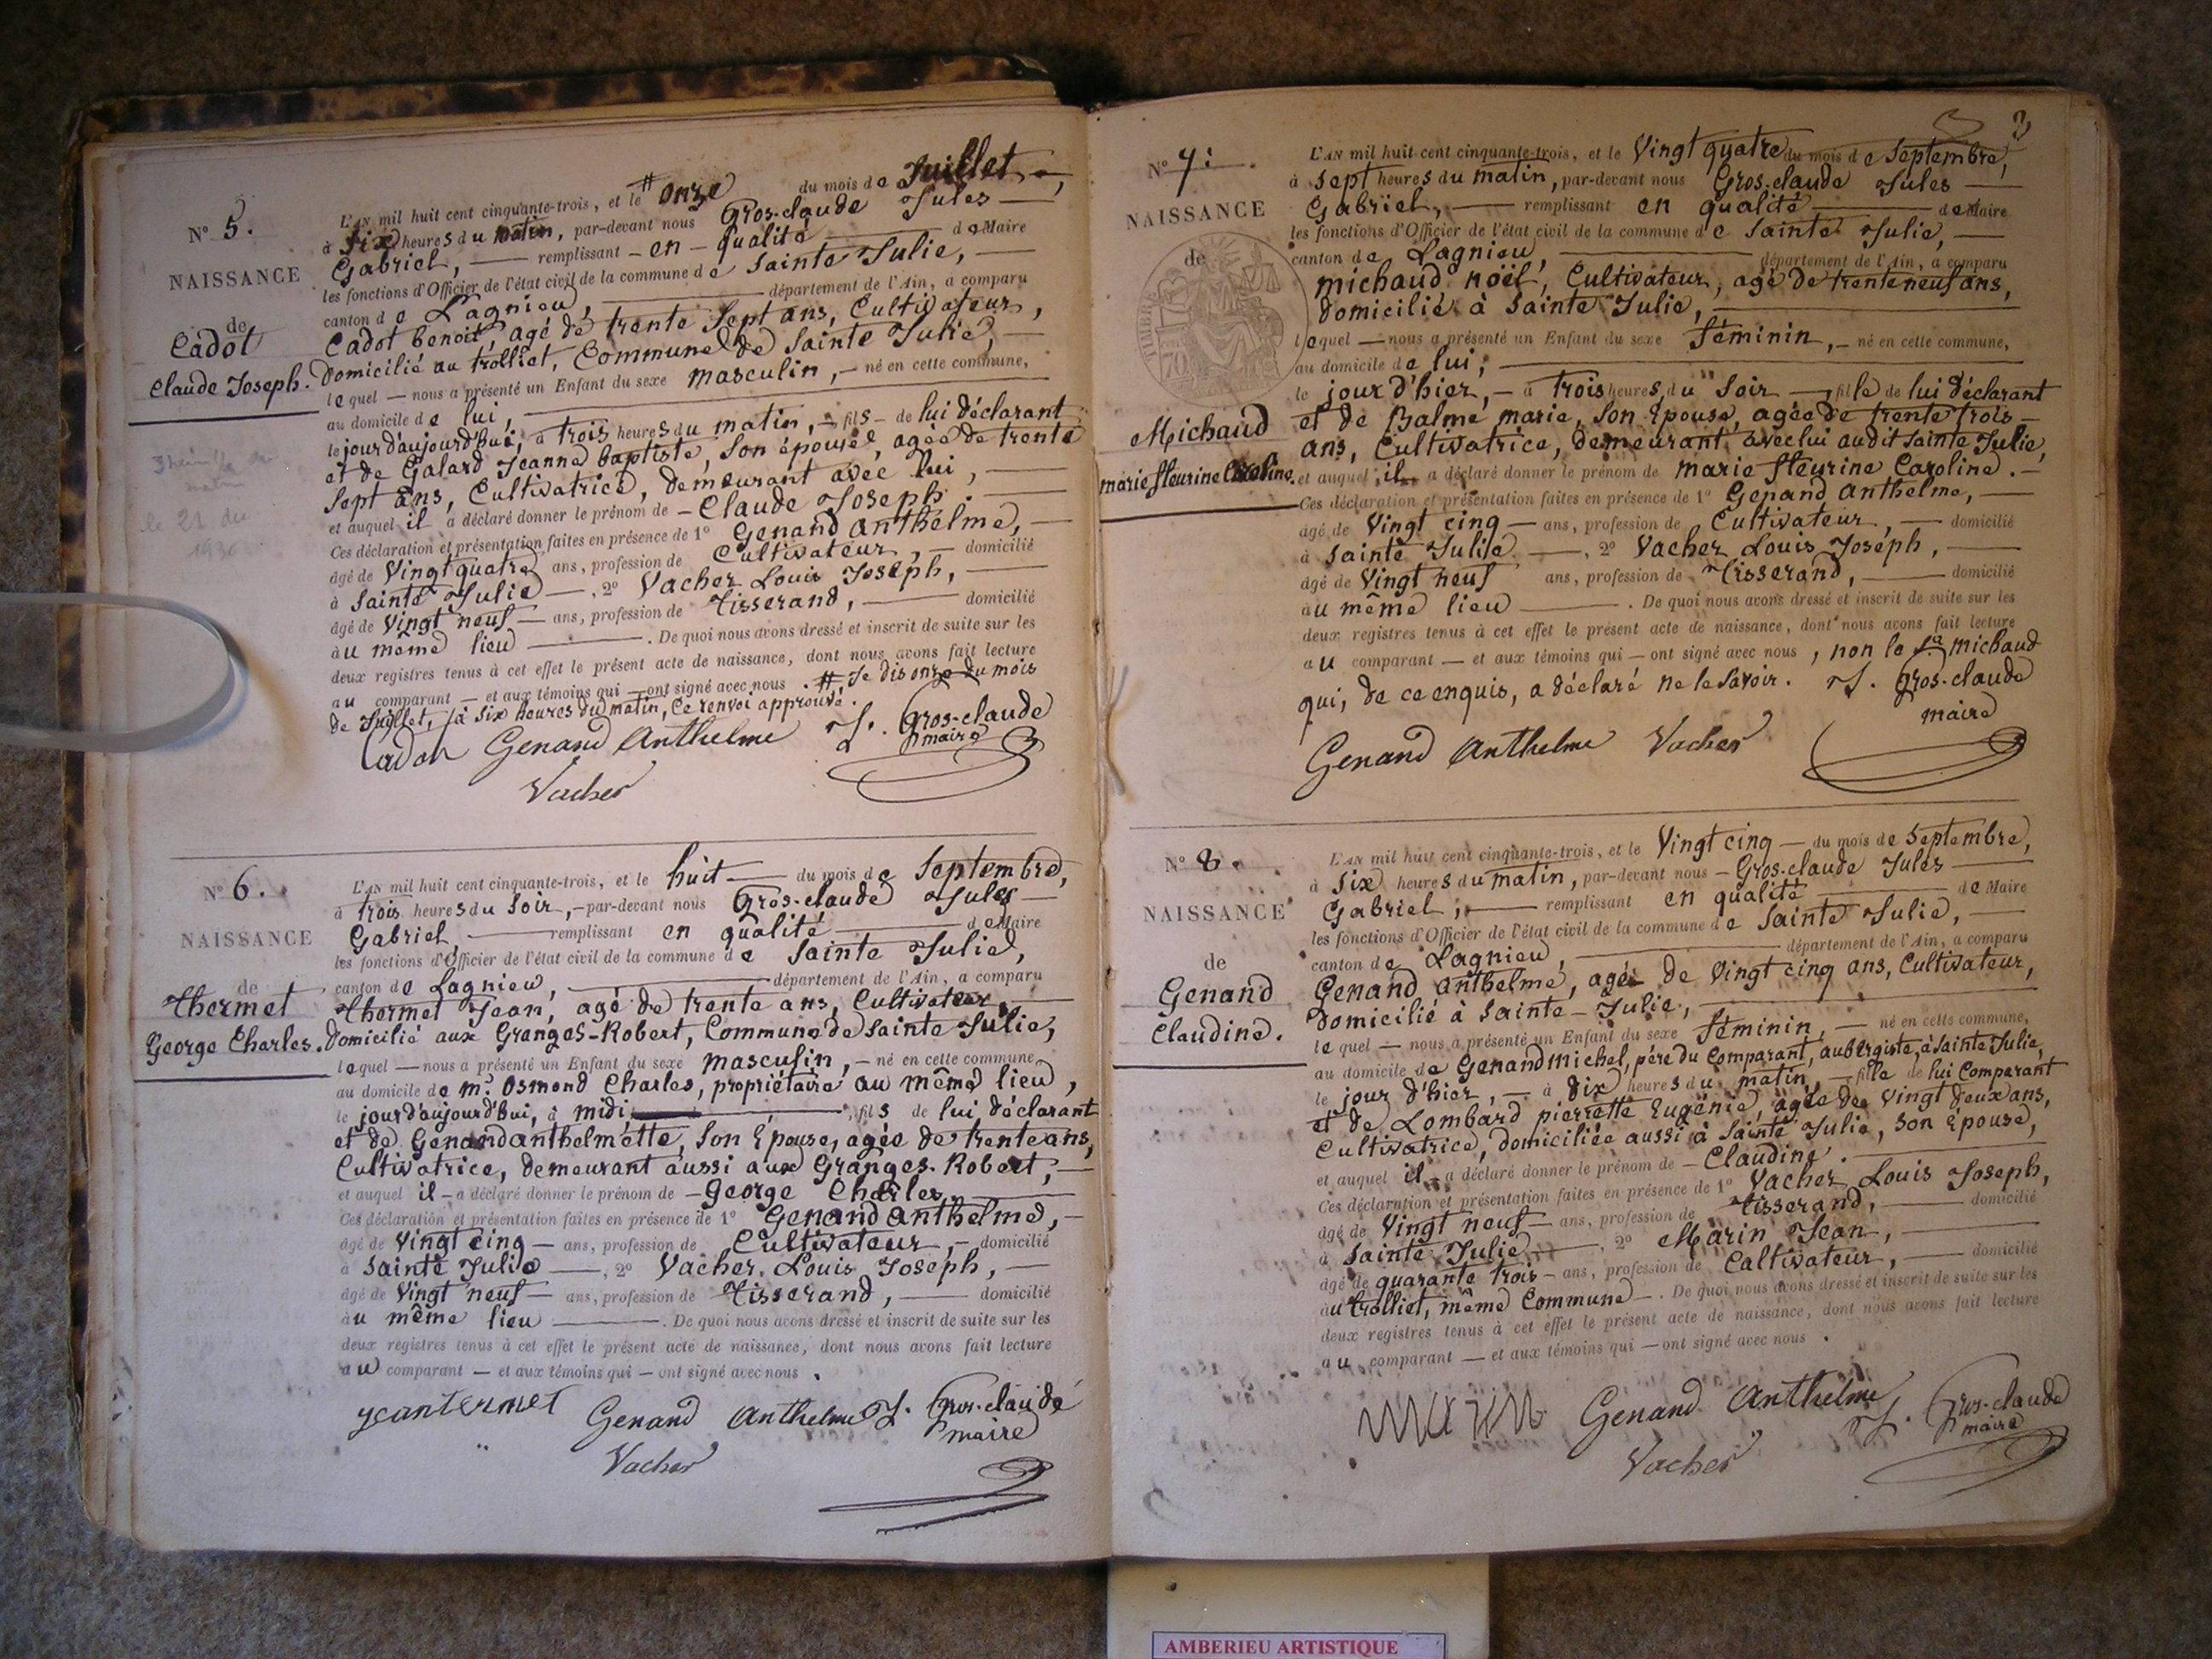 N° 5.
NAISSANCE
de
Cadot
Claude Joseph.
L'AN mil huit cent cinquante-trois, et le # onze du mois de Juillet,
à six heures du matin, par-devant nous Gros-claude Jules
Gabriel, remplissant en qualité de Maire
les fonctions d'Officier de l'état civil de la commune de Sainte Julie,
canton de Lagnieu, département de l'Ain, a comparu
Cadot benoit, agé de trente Sept ans, Cultivateur,
Domicilié au trolliet, Commune de Sainte Julie,
lequel nous a présenté un Enfant du sexe masculin, né en cette commune,
au domicile de lui,
le jour d'aujourd'hui, à trois heures du matin, fils de lui déclarant
et de Galard Jeanne baptiste, Son épouse, agée de trente
Sept ans, Cultivatrice, demeurant avec lui,
et auquel il a déclaré donner le prénom de Claude Joseph.
Ces déclaration et présentation faites en présence de 1° Genand Anthelme,
âgé de Vingt quatre ans, profession de Cultivateur, domicilié
à Sainte Julie, 2° Vacher Louis Joseph,
âgé de Vingt neuf ans, profession de Tisserand, domicilié
au même lieu. De quoi nous avons dressé et inscrit de suite sur les
deux registres tenus à cet effet le présent acte de naissance, dont nous avons fait lecture
au comparant et aux témoins qui ont signé avec nous. # Je dis onze du mois
de Juillet, à six heures du matin, Ce renvoi approuvé.
Cadot Genand Anthelme J. Gros-claude
maire
Vacher
N° 6.
NAISSANCE
de
Thermet
George Charles.
L'AN mil huit cent cinquante-trois, et le huit du mois de Septembre,
à trois heures du Soir, par-devant nous Gros-claude Jules
Gabriel, remplissant en qualité de Maire
les fonctions d'Officier de l'état civil de la commune de Sainte Julie,
canton de Lagnieu, département de l'Ain, a comparu
Thermet Jean, agé de trente ans, Cultivateur,
Domicilié aux Granges-Robert, Commune de Sainte Julie,
lequel nous a présenté un Enfant du sexe masculin, né en cette commune
au domicile de mr. Osmond Charles, propriétaire au même lieu,
le jour d'aujourd'hui, à midi, fils de lui déclarant
et de Genand anthelmette, Son Epouse, agée de trente ans,
Cultivatrice, demeurant aussi aux Granges-Robert,
et auquel il a déclaré donner le prénom de George Charles.
Ces déclaration et présentation faites en présence de 1° Genand Anthelme,
âgé de Vingt cinq ans, profession de Cultivateur, domicilié
à Sainte Julie, 2° Vacher Louis Joseph,
âgé de Vingt neuf ans, profession de Tisserand, domicilié
au même lieu. De quoi nous avons dressé et inscrit de suite sur les
deux registres tenus à cet effet le présent acte de naissance, dont nous avons fait lecture
au comparant et aux témoins qui ont signé avec nous.
jeantermet Genand Anthelme J. Gros-claude
maire
Vacher
3
N° 7.
NAISSANCE
de
Michaud
marie fleurine Caroline.
L'AN mil huit cent cinquante-trois, et le Vingt quatre du mois de Septembre,
à Sept heures du matin, par-devant nous Gros-claude Jules
Gabriel, remplissant en qualité de Maire
les fonctions d'Officier de l'état civil de la commune de Sainte Julie,
canton de Lagnieu, département de l'Ain, a comparu
michaud noël, Cultivateur, agé de trente neuf ans,
domicilié à Sainte Julie,
lequel nous a présenté un Enfant du sexe féminin, né en cette commune,
au domicile de lui,
le jour d'hier, à trois heures du Soir, fille de lui déclarant
et de Balme marie, Son Epouse, agée de trente trois
ans, Cultivatrice, demeurant avec lui audit Sainte Julie,
et auquel il a déclaré donner le prénom de marie fleurine Caroline.
Ces déclaration et présentation faites en présence de 1° Genand anthelme,
âgé de Vingt cinq ans, profession de Cultivateur, domicilié
à Sainte Julie, 2° Vacher Louis Joseph,
âgé de Vingt neuf ans, profession de Tisserand, domicilié
au même lieu. De quoi nous avons dressé et inscrit de suite sur les
deux registres tenus à cet effet le présent acte de naissance, dont nous avons fait lecture
au comparant et aux témoins qui ont signé avec nous, non le michaud
qui, de ce enquis, a déclaré ne le Savoir. J. Gros-claude
maire
Genand Anthelme Vacher
N° 8.
NAISSANCE
de
Genand
Claudine.
L'AN mil huit cent cinquante-trois, et le Vingt cinq du mois de Septembre,
à Six heures du matin, par-devant nous Gros-claude Jules
Gabriel, remplissant en qualité de Maire
les fonctions d'Officier de l'état civil de la commune de Sainte Julie,
canton de Lagnieu, département de l'Ain, a comparu
Genand anthelme, agé de Vingt cinq ans, Cultivateur,
Domicilié à Sainte-Julie,
lequel nous a présenté un Enfant du sexe féminin, né en cette commune,
au domicile de Genand Michel, père du Comparant, aubergiste, à Sainte Julie,
le jour d'hier, à dix heures du matin, fille de lui Comparant
et de Lombard pierrette Eugénie, agée de Vingt deux ans,
Cultivatrice, domiciliée aussi à Sainte Julie, son Epouse,
et auquel il a déclaré donner le prénom de Claudine.
Ces déclaration et présentation faites en présence de 1° Vacher Louis Joseph,
âgé de Vingt neuf ans, profession de Tisserand, domicilié
à Sainte Julie, 2° Marin Jean,
âgé de quarante trois ans, profession de Caltivateur, domicilié
au trolliet, même Commune. De quoi nous avons dressé et inscrit de suite sur les
deux registres tenus à cet effet le présent acte de naissance, dont nous avons fait lecture
au comparant et aux témoins qui ont signé avec nous.
marin Genand Anthelme J. Gros-claude
maire
Vacher
AMBERIEU ARTISTIQUE